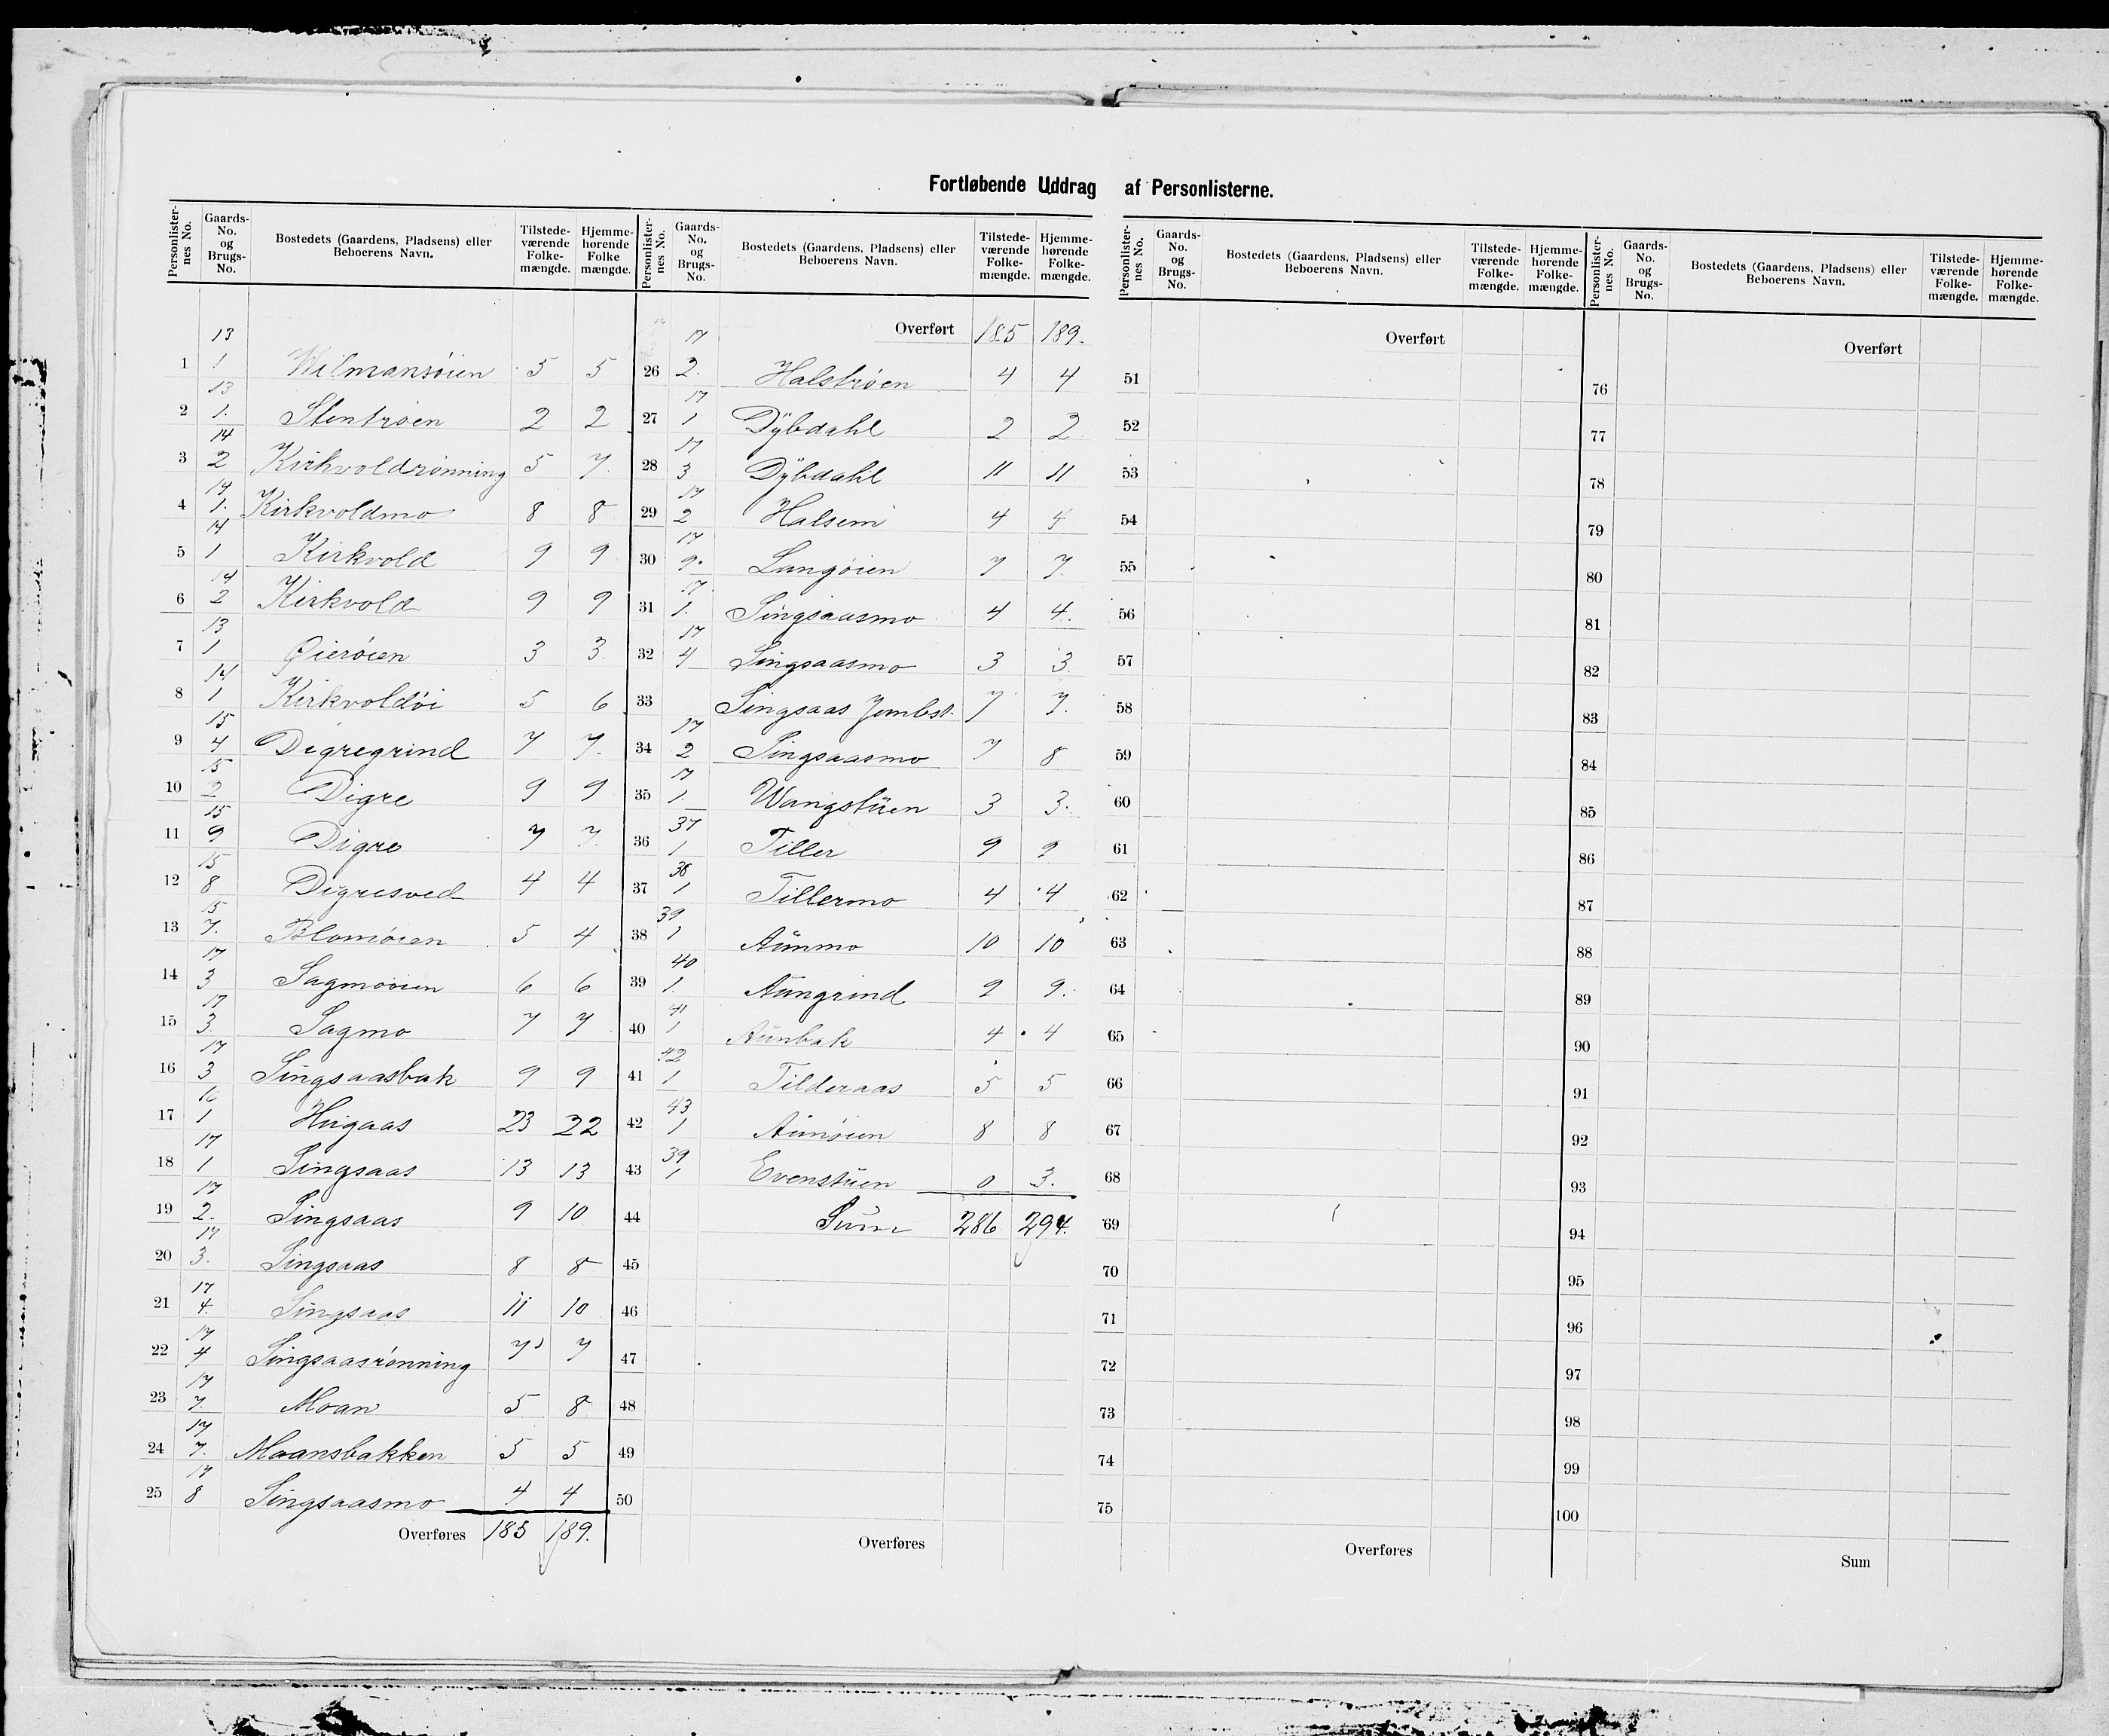 Fortløbende Uddrag af Personlisterne.
Personlisternes No. | Gaards-No. og Brugs-No. | Bostedets (Gaardens, Pladsens) eller Beboerens Navn. | Tilstedeværende Folkemængde. | Hjemmehørende Folkemængde.
1 | 13 1 | Wilmansøien | 5 | 5
2 | 13 1. | Stentrøen | 2 | 2
3 | 14 2 | Kirkvoldrønning | 5 | 7.
4 | 14 1. | Kirkvoldmo | 8 | 8
5 | 14 1 | Kirkvold | 9 | 9
6 | 14 2 | Kirkvold | 9 | 9
7 | 13 1 | Gierøien | 3 | 3
8 | 14 1 | Kirkvoldøi | 5 | 6
9 | 15 4 | Digregrind | 7 | 7.
10 | 15 2 | Digre | 9 | 9
11 | 15 9 | Digre | 7 | 7.
12 | 15 8 | Digresved | 4 | 4
13 | 15 7. | Blomøien | 5 | 4
14 | 17 3 | Sagmoøien | 6 | 6
15 | 17 3. | Sagmo | 7 | 7
16 | 17 3 | Singsaasbak | 9 | 9
17 | 16 1 | Hugaas | 23 | 22
18 | 17 1 | Singsaas | 13 | 13
19 | 17 2. | Singsaas | 9 | 10
20 | 17 3. | Singsaas | 8 | 8
21 | 17 4. | Singsaas | 11 | 10
22 | 17 4 | Singsaasrønning | 7 | 7
23 | 17 7. | Moan | 5 | 8
24 | 17 7. | Moansbakken | 5 | 5
25 | 17 8 | Singsaasmo | 4 | 4
Overføres | 185 | 189.
Personlisternes No. | Gaards-No. og Brugs-No. | Bostedets (Gaardens, Pladsens) eller Beboerens Navn. | Tilstedeværende Folkemængde. | Hjemmehørende Folkemængde.
Overført | 185 | 189.
26 | 17 2. | Halstrøen | 4 | 4
27 | 17 1 | Dÿbdahl | 2 | 2
28 | 17 3 | Dÿbdahl | 11 | 11
29 | 17 2 | Halsem | 4 | 4
30 | 17 9. | Langøien | 7 | 7.
31 | 17 1. | Singsaasmo | 4 | 4.
32 | 17 4 | Singsaasmo | 3 | 3.
33 | Singsaas Jernbst. | 7 | 7.
34 | 17 2 | Singsaasmo | 7 | 8
35 | 17 1. | Wangstuen | 3 | 3.
36 | 37 1 | Tiller | 9 | 9
37 | 38 1 | Tillermo | 4 | 4
38 | 39 1 | Aunmo | 10 | 10
39 | 40 1. | Aungrind | 9 | 9.
40 | 41 1 | Aunbak | 4 | 4
41 | 42 1 | Tilderaas | 5 | 5
42 | 43 1 | Aunøien | 8 | 8
43 | 39 1 | Evenstuen | 0 | 3.
44 | Sum | 286 | 294.
45
46
47
48
49
50
Overføres
Personlisternes No. | Gaards-No. og Brugs-No. | Bostedets (Gaardens, Pladsens) eller Beboerens Navn. | Tilstedeværende Folkemængde. | Hjemmehørende Folkemængde.
Overført
51
52
53
54
55
56
57
58
59
60
61
62
63
64
65
66
67
68
69
70
71
72
73
74
75
Overføres
Personlisternes No. | Gaards-No. og Brugs-No. | Bostedets (Gaardens, Pladsens) eller Beboerens Navn. | Tilstedeværende Folkemængde. | Hjemmehørende Folkemængde.
Overført
76
77
78
79
80
81
82
83
84
85
86
87
88
89
90
91
92
93
94
95
96
97
98
99
100
Sum